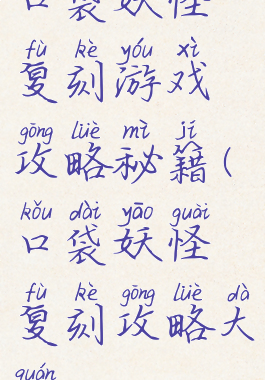 口袋妖怪
fù kè yóu xì
复刻游戏
gōng lüè mì jí
攻略秘籍(
kǒu dài yāo guài
口袋妖怪
fù kè gōng lüè dà
复刻攻略大
quán